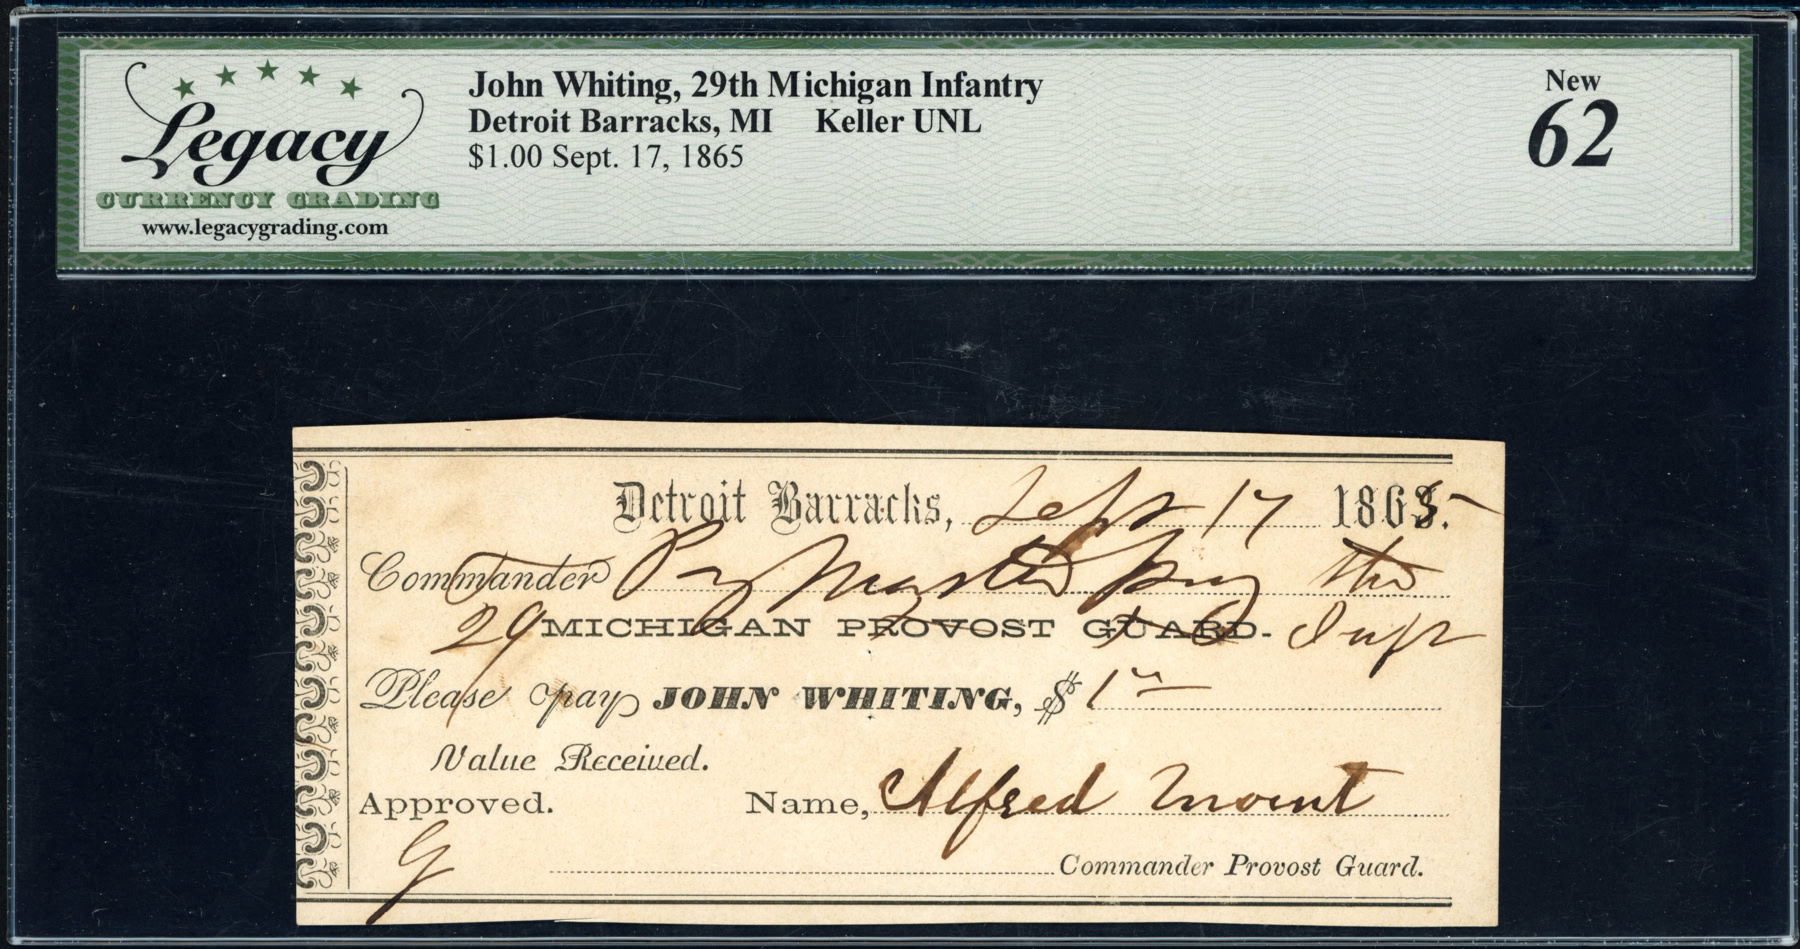 Legacy
CURRENCY GRADING
www.legacygrading.com
John Whiting, 29th Michigan Infantry
Detroit Barracks, MI Keller UNL
$1.00 Sept. 17, 1865
New
62
Detroit Barracks, Sept 17 1865.
Commander Pay Master pay the
29 MICHIGAN PROVOST GUARD. Inft
Please pay JOHN WHITING, $1
Value Received.
Approved. Name, Alfred Mount
G
Commander Provost Guard.